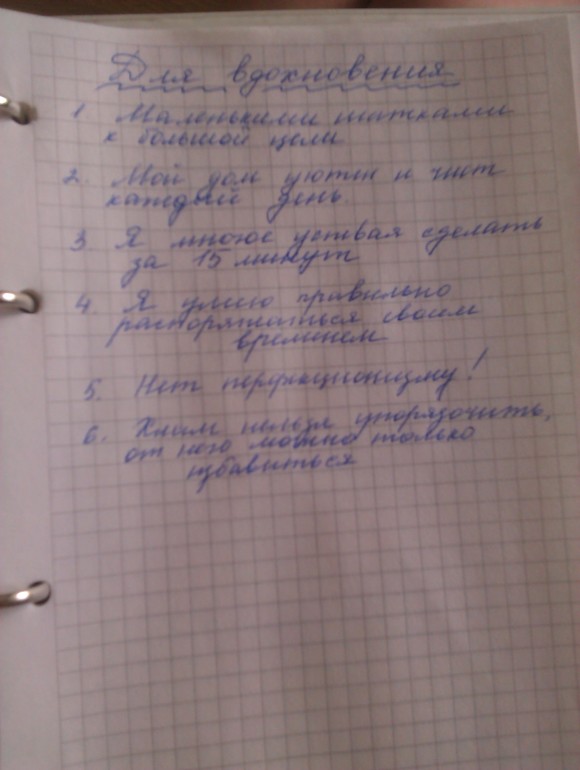 Для вдохновения
1 Маленькими шажками
к большой цели
2. Мой дом уютен и чист
каждый день
3 Я многое успеваю сделать
за 15 минут
4 Я умею правильно
распоряжаться своим
временем
5. Нет перфекционизму!
6. Хлам нельзя упорядочить,
от него можно только
избавиться